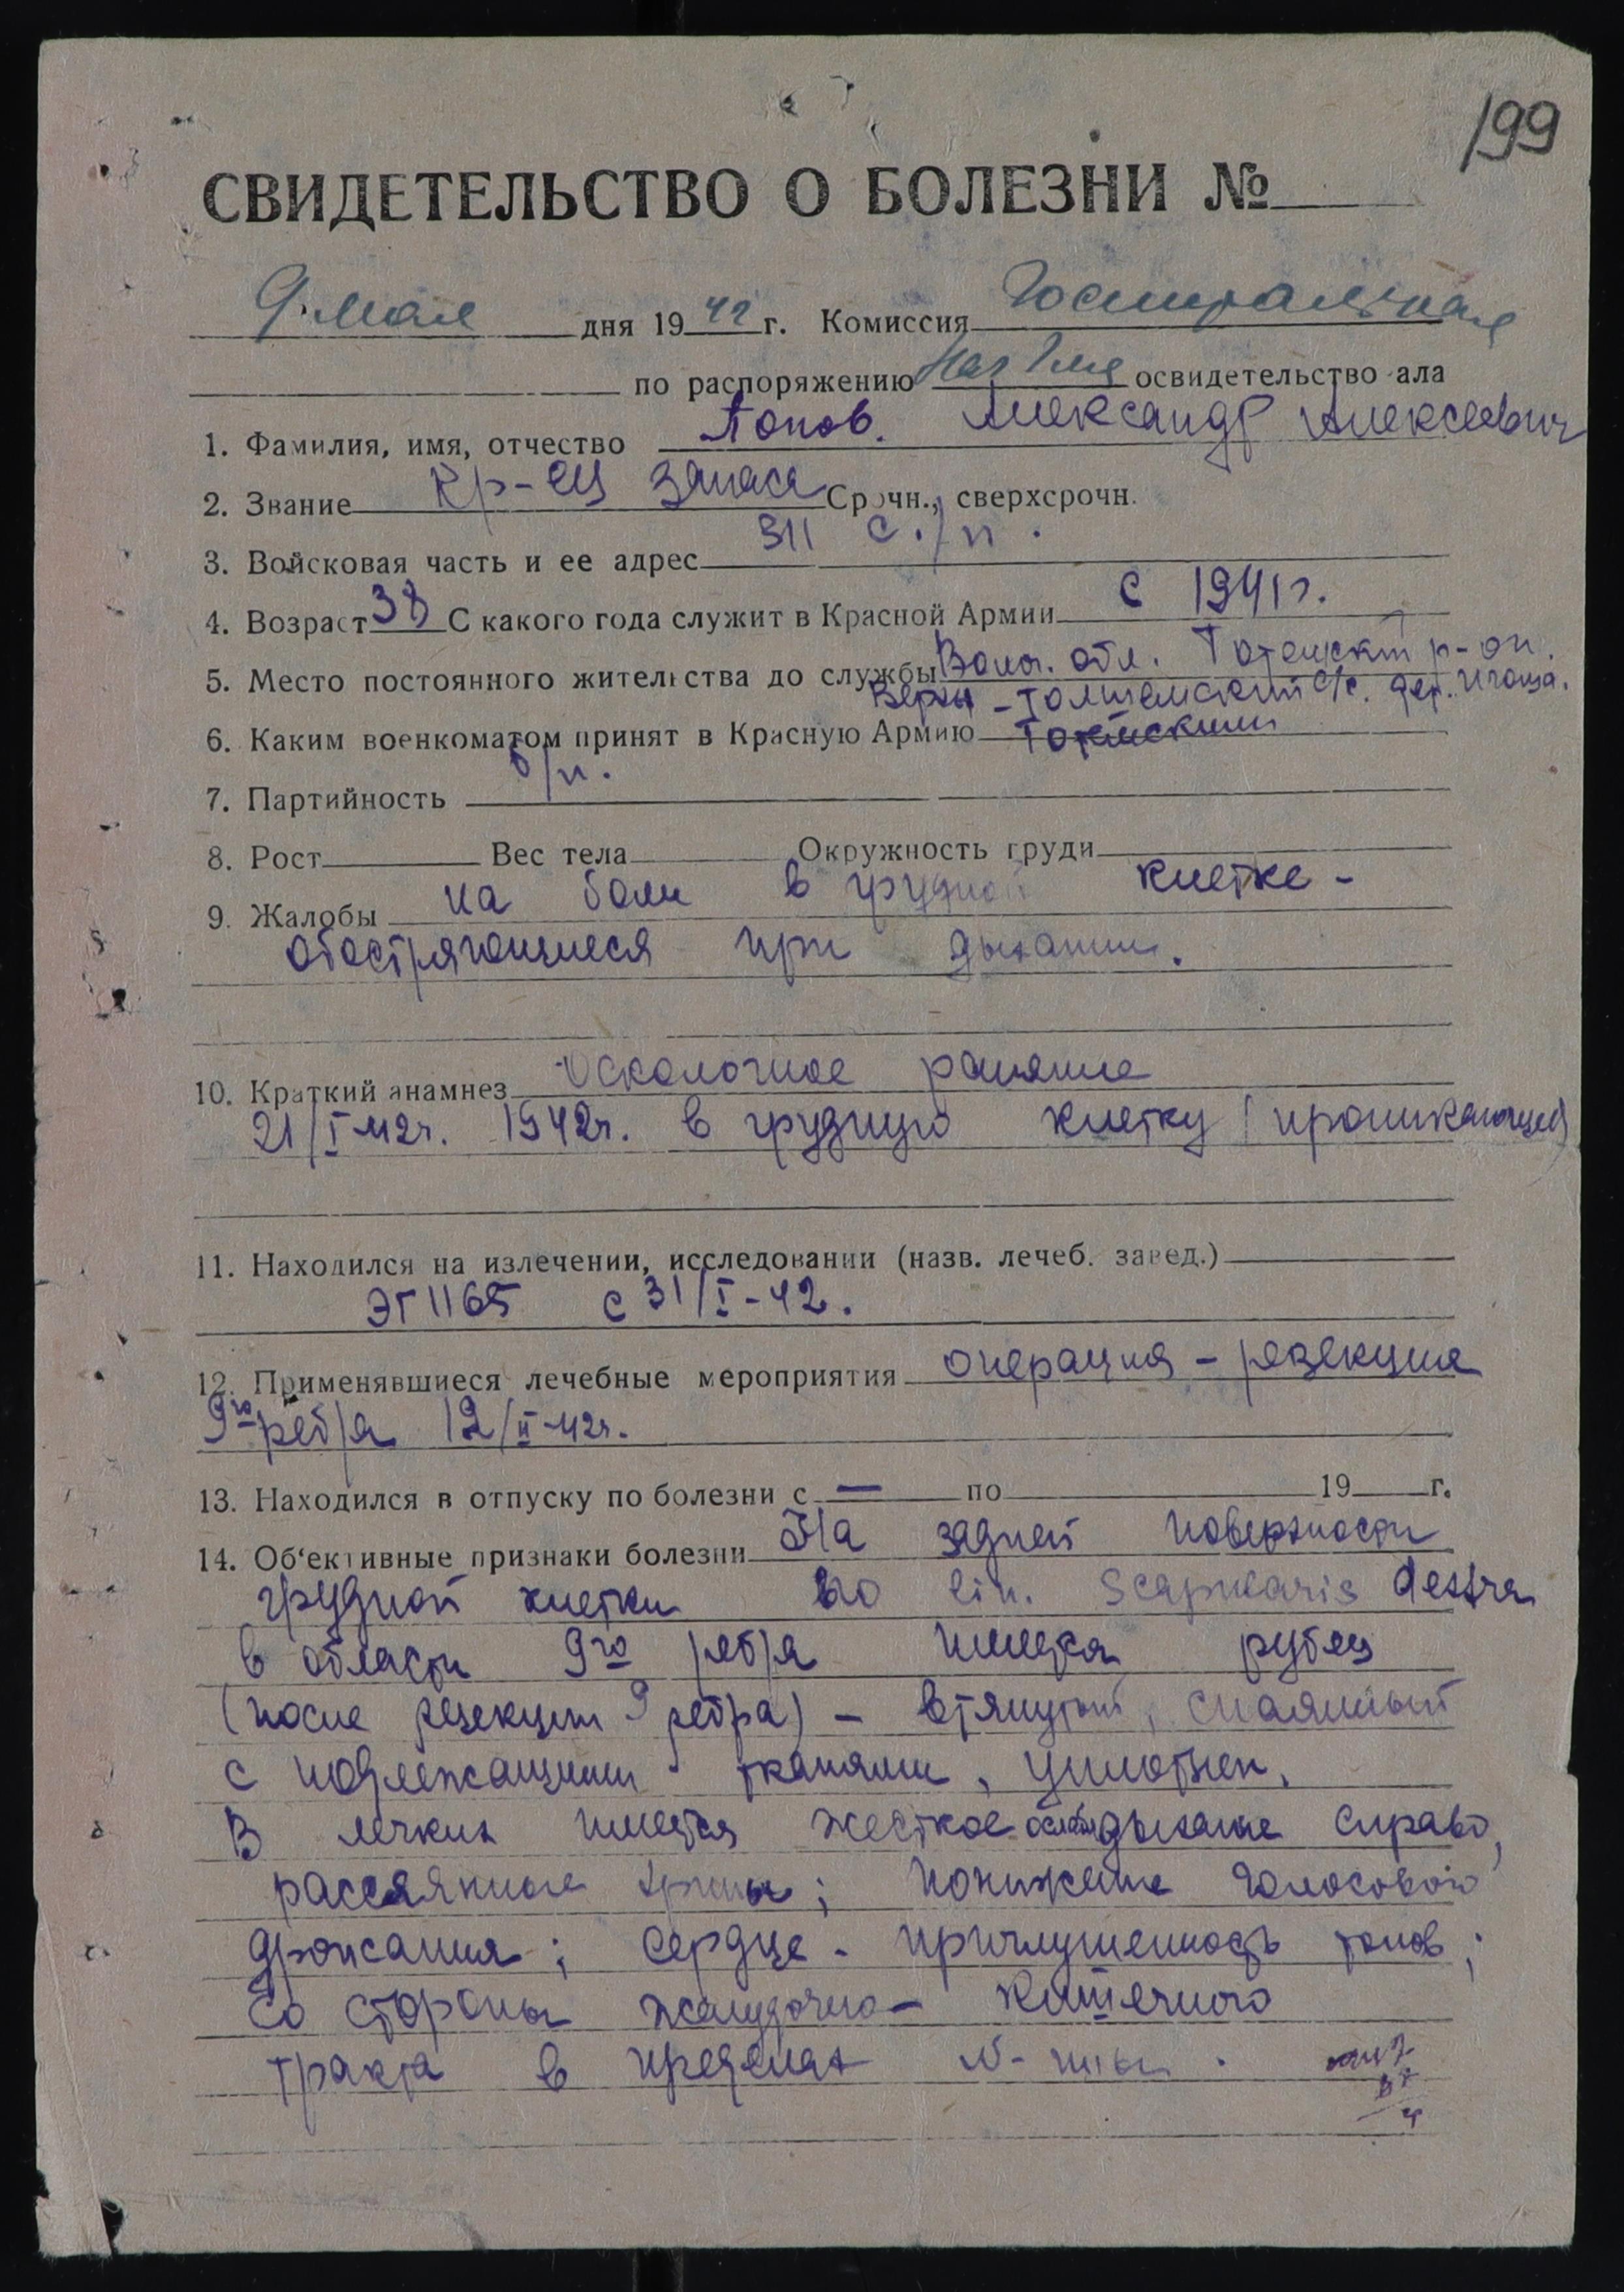 199
СВИДЕТЕЛЬСТВО О БОЛЕЗНИ №
9 мая дня 1942 г. Комиссия Госпитальная
по распоряжению Нач Гля освидетельство ала
1. Фамилия, имя, отчество Попов. Александр Алексеевич
2. Звание Кр-ец запаса Срочн., сверхсрочн.
3. Войсковая часть и ее адрес 311 с./п.
4. Возраст 38 С какого года служит в Красной Армии с 1941г.
5. Место постоянного жительства до службы Волог. обл. Тотемский р-он.
Верхн-Толшемский с/с. дер.
6. Каким военкоматом принят в Красную Армию Тотемским
7. Партийность б/п.
8. Рост Вес тела Окружность груди
9. Жалобы на боли в грудной клетке -
обостряющиеся при дыхании.
10. Краткий анамнез Осколочное ранение
21/I-42г. 1942г. в грудную клетку (проникающее)
11. Находился на излечении, исследовании (назв. лечеб. завед.)
ЭГ 1165 с 31/I-42.
12. Применявшиеся лечебные мероприятия операция - резекция
9го ребра 12/II-42г.
13. Находился в отпуску по болезни с — по 19 г.
14. Об'ективные признаки болезни На задней поверхности
грудной клетки по lin. Scapularis dextra
в области 9го ребра имеется рубец
(после резекции 9 ребра) - втянутый, спаянный
с подлежащими тканями, уплотнен.
В легких имеется жесткое ослабл дыхание справо,
рассеянные хрипы; понижение голосового
дрожания; сердце - приглушенность тонов;
Со стороны желудочно-кишечного
тракта в пределах N-мы.